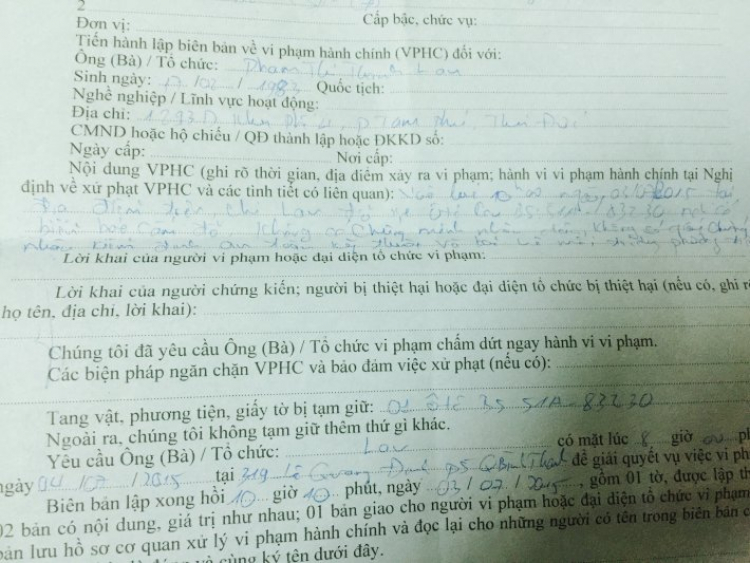 2
Đơn vị: Cấp bậc, chức vụ:
Tiến hành lập biên bản về vi phạm hành chính (VPHC) đối với:
Ông (Bà) / Tổ chức: Phạm Thị Lan
Sinh ngày: 17/02/1983 Quốc tịch:
Nghề nghiệp / Lĩnh vực hoạt động:
Địa chỉ: 1293D Khu phố
CMND hoặc hộ chiếu / QĐ thành lập hoặc ĐKKD số:
Ngày cấp: Nơi cấp:
Nội dung VPHC (ghi rõ thời gian, địa điểm xảy ra vi phạm; hành vi vi phạm hành chính tại Nghị
định về xử phạt VPHC và các tình tiết có liên quan): Vào lúc ngày 2015 tại
Địa điểm trên chị Lan 51A-83230
biển báo cấm đỗ, không có chứng minh nhân dân, không có giấy chứng
nhận kiểm định an toàn kỹ thuật và bảo vệ môi trường phương
Lời khai của người vi phạm hoặc đại diện tổ chức vi phạm:
Lời khai của người chứng kiến; người bị thiệt hại hoặc đại diện tổ chức bị thiệt hại (nếu có, ghi r
họ tên, địa chỉ, lời khai):
Chúng tôi đã yêu cầu Ông (Bà) / Tổ chức vi phạm chấm dứt ngay hành vi vi phạm.
Các biện pháp ngăn chặn VPHC và bảo đảm việc xử phạt (nếu có):
Tang vật, phương tiện, giấy tờ bị tạm giữ: 01 ôtô BS 51A-83230
Ngoài ra, chúng tôi không tạm giữ thêm thứ gì khác.
Yêu cầu Ông (Bà) / Tổ chức: Lan có mặt lúc 8 giờ 00 ph
ngày 04/07/2015 tại 319 Lê Quang Định p5 Q Bình Thạnh để giải quyết vụ việc vi ph
Biên bản lập xong hồi 10 giờ 10 phút, ngày 03/07/2015, gồm 01 tờ, được lập th
02 bản có nội dung, giá trị như nhau; 01 bản giao cho người vi phạm hoặc đại diện tổ chức vi phạm
bản lưu hồ sơ cơ quan xử lý vi phạm hành chính và đọc lại cho những người có tên trong biên bản c
và cùng ký tên dưới đây.